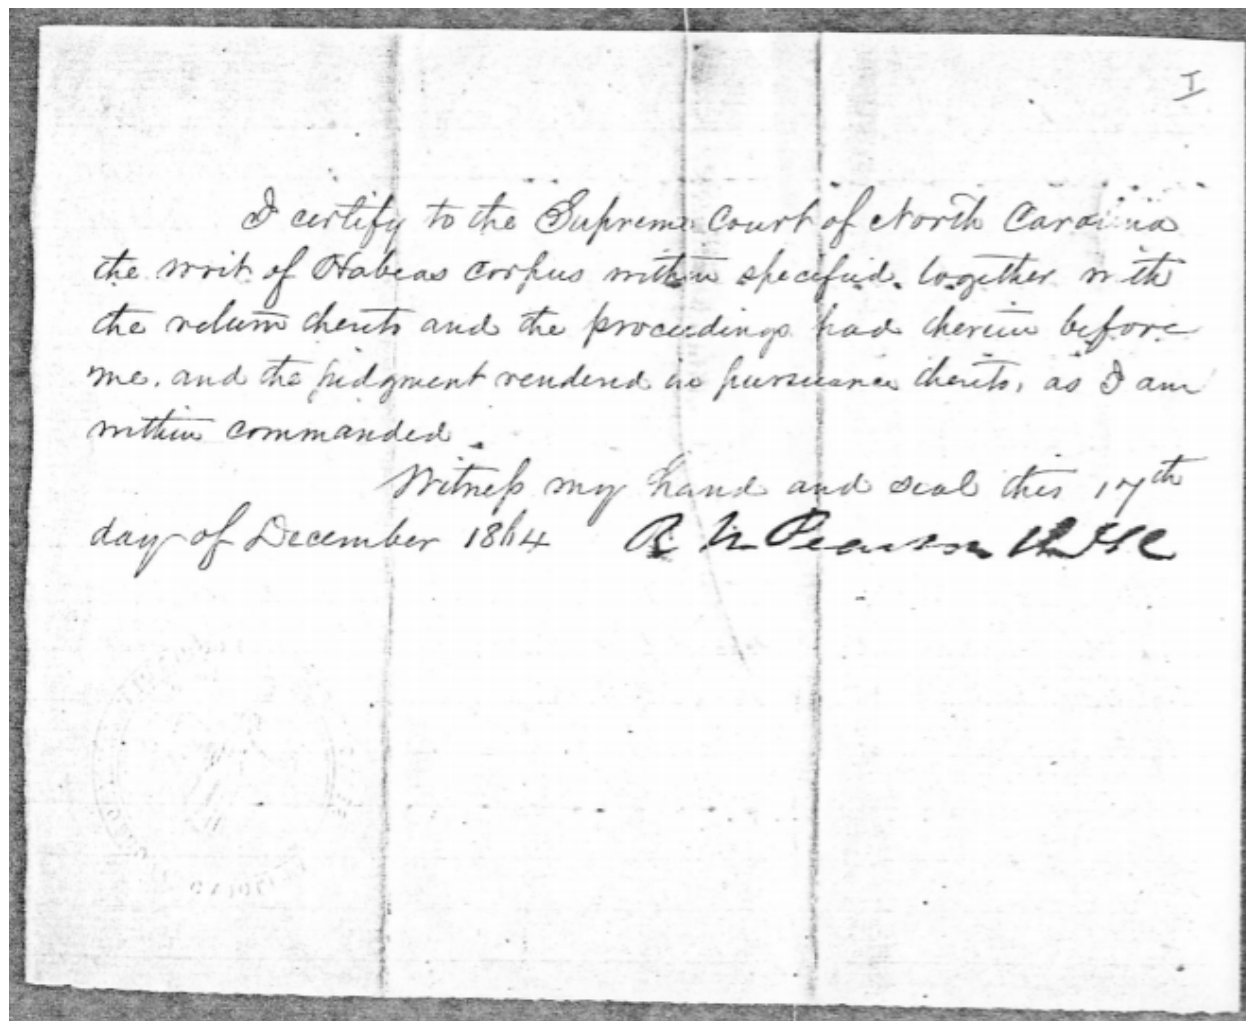 I
I certify to the Supreme Court of North Carolina
the writ of Habeas Corpus within specified. together with
the return thereto and the proceedings had therein before
me, and the judgment rendered in pursuance thereto, as I am
within commanded.
Witness my hand and seal this 17th
day of December 1864 R M Pearson Ch J S C